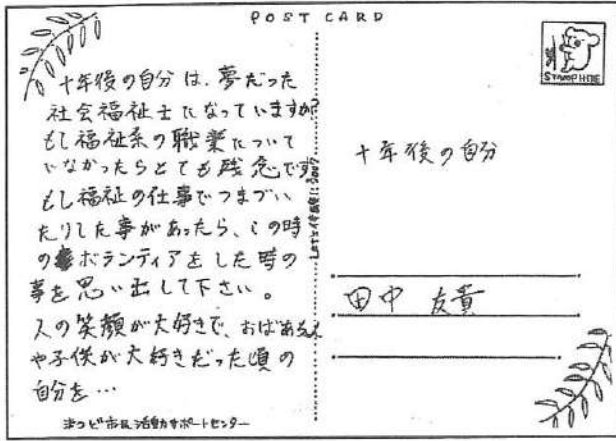 POST CARD
十年後の自分は、夢だった
社会福祉士になっていますか?
もし福祉系の職業について
いなかったらとても残念です
もし福祉の仕事でつまづい
たりした事があったら、この時
のボランティアをした時の
事を思い出して下さい。
人の笑顔が大好きで、おばあちゃん
や子供が大好きだった頃の
自分を…
まつど市民活動サポートセンター
STAMP HERE
十年後の自分
田中 友貴